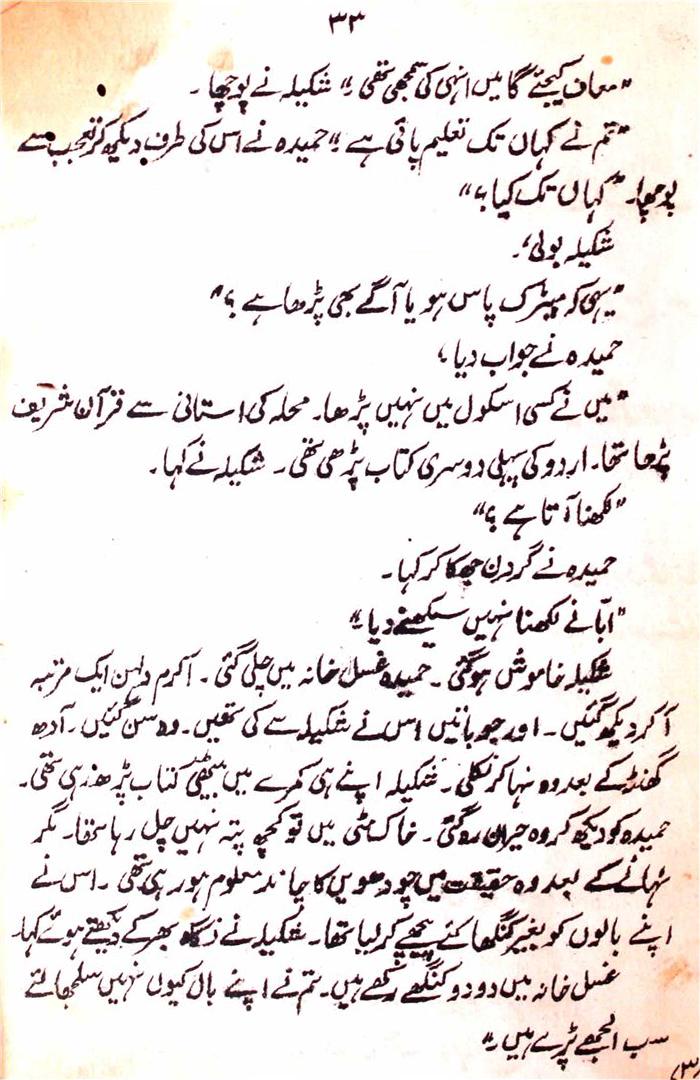 ۳۳
"معاف کیجئے گا میں انہی کی سمجھی تھی۔" شکیلہ نے پوچھا۔
"تم نے کہاں تک تعلیم پائی ہے۔" حمیدہ نے اس کی طرف دیکھ کر تعجب سے
پوچھا۔ "کہاں تک کیا؟"
شکیلہ بولی،
"یہی کہ میٹرک پاس ہو یا آگے بھی پڑھا ہے؟"
حمیدہ نے جواب دیا،
"میں نے کسی اسکول میں نہیں پڑھا۔ محلہ کی استانی سے قرآن شریف
پڑھا تھا۔ اردو کی پہلی دوسری کتاب پڑھی تھی۔ شکیلہ نے کہا۔
"لکھنا آتا ہے؟"
حمیدہ نے گردن جھکا کر کہا۔
"ابّا نے لکھنا نہیں سیکھنے دیا۔"
شکیلہ خاموش ہو گئی۔ حمیدہ غسل خانہ میں چلی گئی۔ اکرم دلہن ایک مرتبہ
آ کر دیکھ گئیں۔ اور جو باتیں اس نے شکیلہ سے کی تھیں۔ وہ سن گئیں۔ آدھ
گھنٹہ کے بعد وہ نہا کر نکلی۔ شکیلہ اپنے ہی کمرے میں بیٹھی کتاب پڑھ رہی تھی۔
حمیدہ کو دیکھ کر وہ حیران رہ گئی۔ خاک مٹی میں تو کچھ پتہ نہیں چل رہا تھا۔ مگر
نہانے کے بعد وہ حقیقت میں چودھویں کا چاند معلوم ہو رہی تھی۔ اس نے
اپنے بالوں کو بغیر کنگھا کئے پیچھے کر لیا تھا۔ شکیلہ نے نگاہ بھر کے دیکھتے ہوئے کہا۔
غسل خانہ میں دو دو کنگھے رکھے ہیں۔ تم نے اپنے بال کیوں نہیں سلجھائے
سب الجھے پڑے ہیں۔"
(۳)